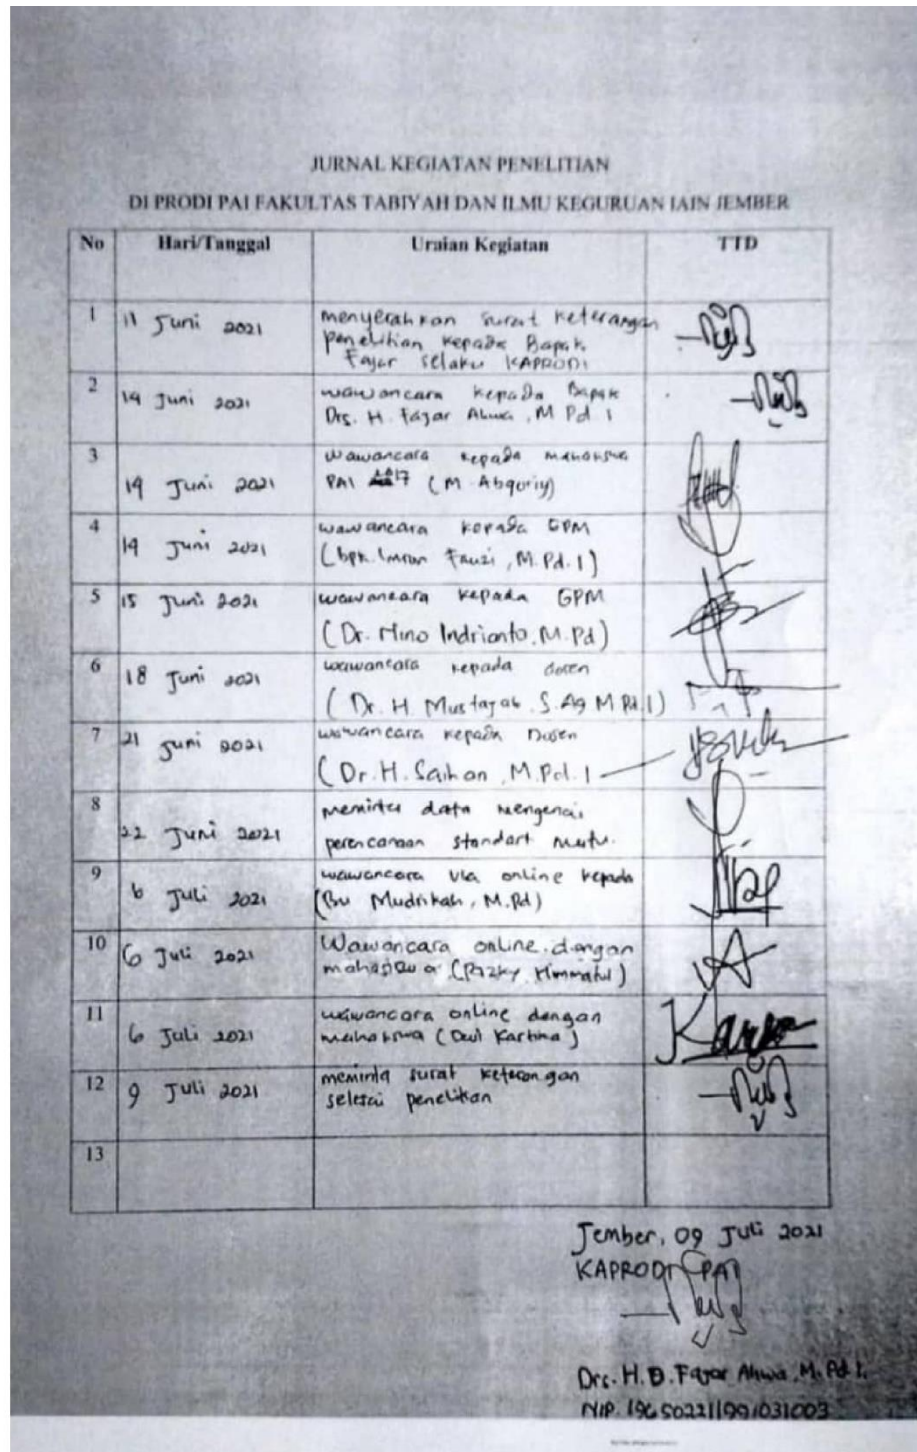 JURNAL KEGIATAN PENELITIAN
DI PRODI PAI FAKULTAS TABIYAH DAN ILMU KEGURUAN IAIN JEMBER
No Hari/Tanggal Uraian Kegiatan TTD
1 11 Juni 2021 menyerahkan surat keterangan
penelitian kepada Bapak
Fajar selaku KAPRODI
2 14 Juni 2021 wawancara kepada Bapak
Drs. H. Fajar Ahwa, M Pd. I
3 14 Juni 2021 wawancara kepada mahasiswa
PAI 17 (M. Abqoriy)
4 14 Juni 2021 wawancara kepada GPM
(bpk. Imron Fauzi, M. Pd. I)
5 15 Juni 2021 wawancara kepada GPM
(Dr. Nino Indrianto, M. Pd)
6 18 Juni 2021 wawancara kepada dosen
(Dr. H. Mustajab. S. Ag M Pd. I)
7 21 Juni 2021 wawancara kepada Dosen
(Dr. H. Saihan, M. Pd. I
8 22 Juni 2021 meminta data mengenai
perencanaan standart mutu.
9 6 Juli 2021 wawancara via online kepada
(Bu Mudrikah, M. Pd)
10 6 Juli 2021 Wawancara online dengan
mahasiswa (Rizky Himmatul)
11 6 Juli 2021 wawancara online dengan
mahasiswa (Dewi Kartika)
12 9 Juli 2021 meminta surat keterangan
selesai penelitian
13
Jember, 09 Juli 2021
KAPRODI PAI
Drs. H. D. Fajar Ahwa, M. Pd I.
NIP. 196502211991031003